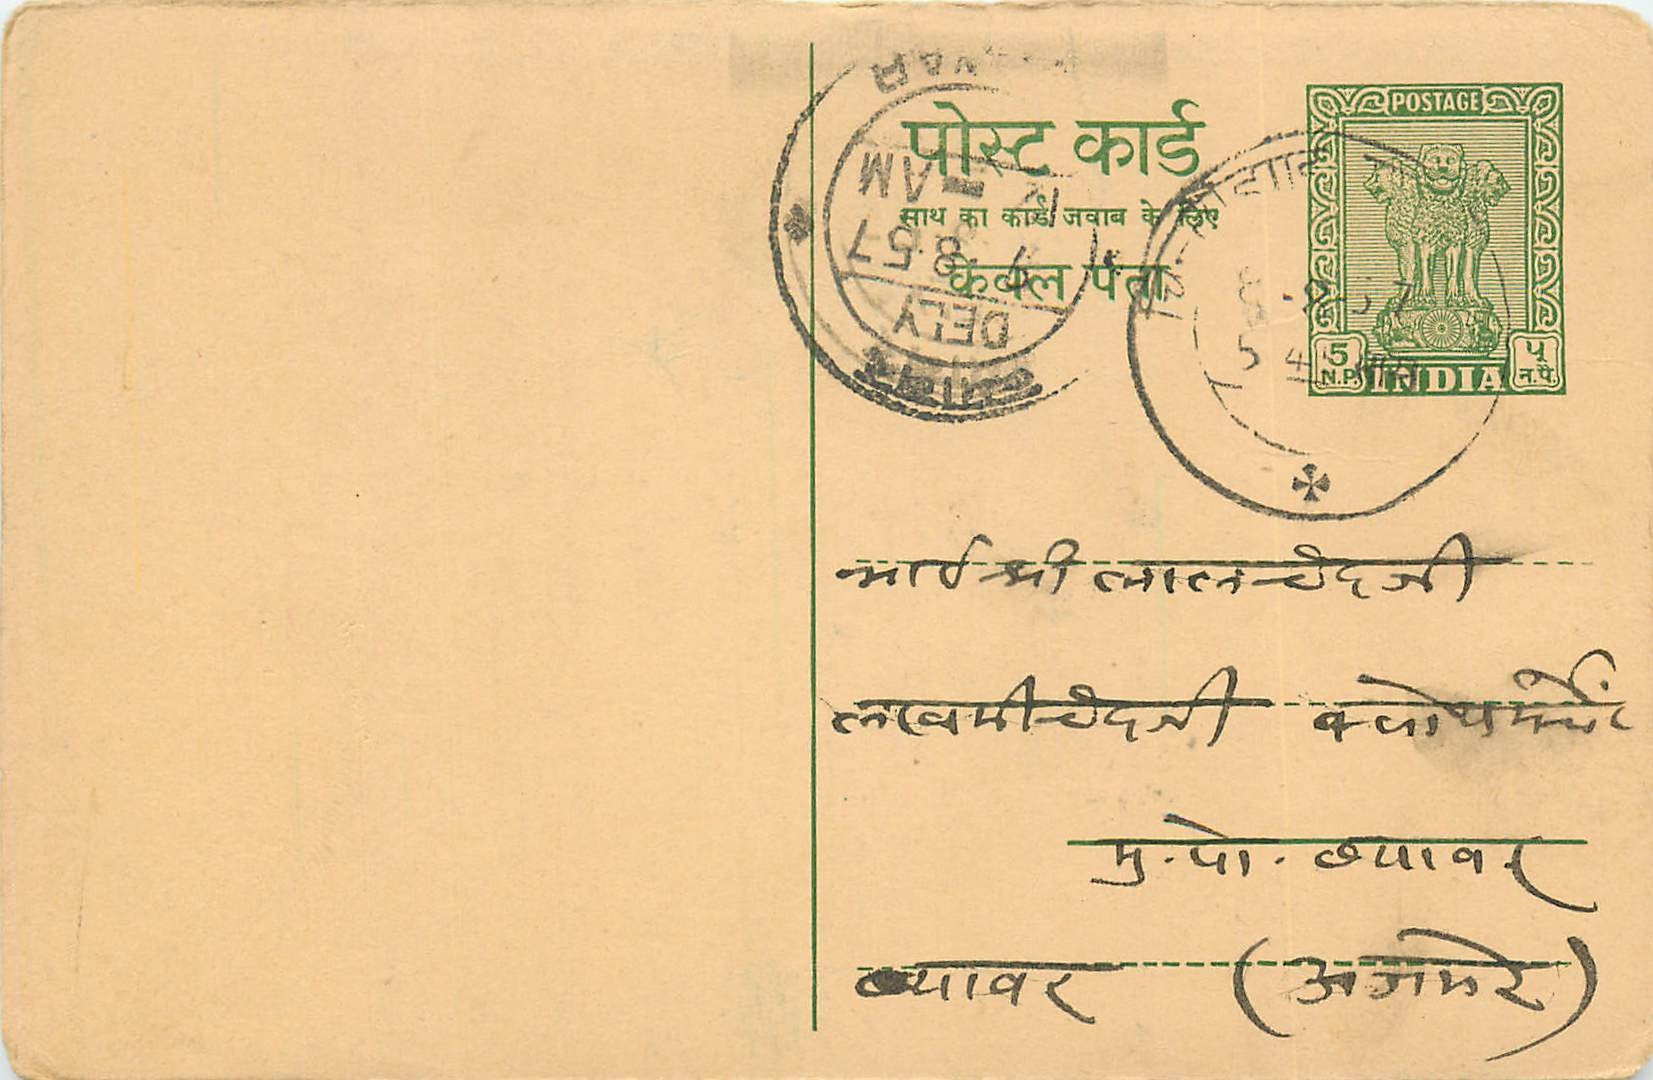 POSTAGE
पोस्ट कार्ड
साथ का कार्ड जवाब के लिए
केवल पता
5 N.P. INDIA ५ न.पै.
AM
8.57
DELY
भाई श्री लालचंदजी
लखमीचंदजी क्लोथ मर्चेंट
मु. पो. ब्यावर
ब्यावर (अजमेर)